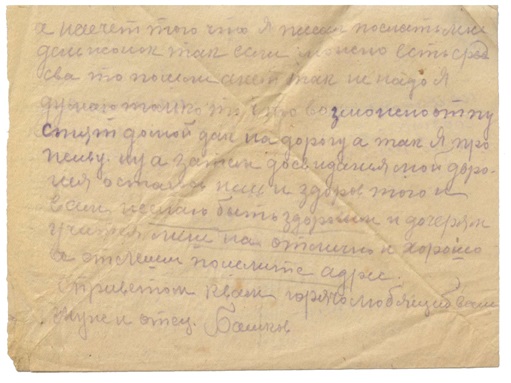 а насчет того что я писал послать мне
денжонок так если можно есть сред
сва то пошли а нет так и не надо я
думаю только то, что возможно отпу
стят домой дак на дорогу а так я про
живу. ну а затем досвидания мои доро
гия остаюсь жив и здоров того и
вам желаю быть здоровым и дочерям
учатся мне на отлично и хорошо
а отслеши пошлите адрес.
с приветом к вам горячо любящий ваш
муж и отец. Башков